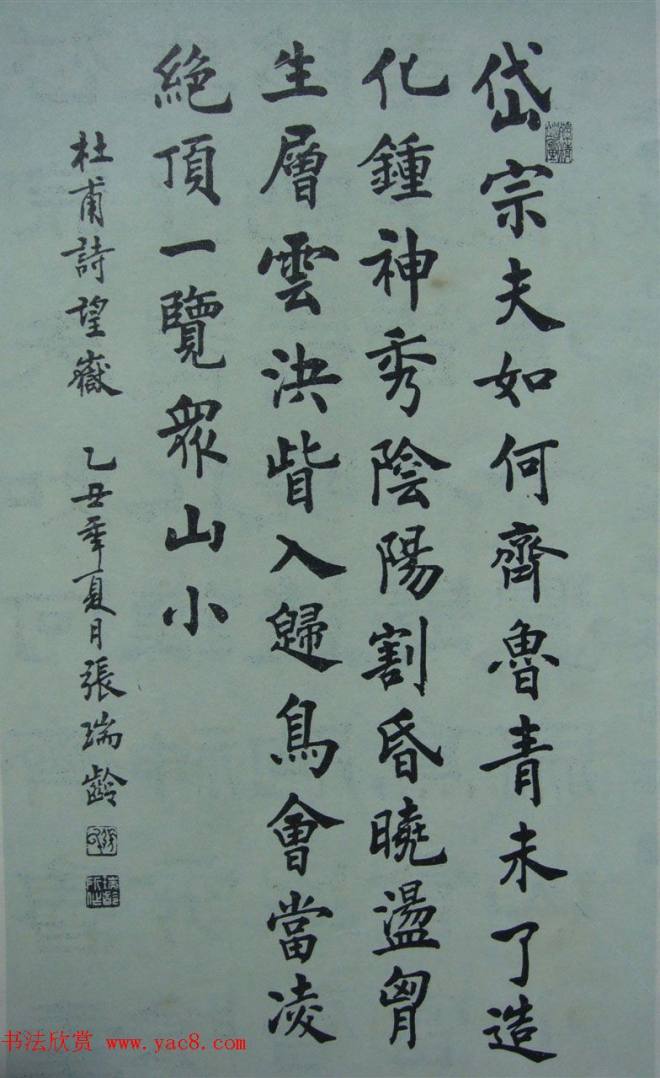 岱宗夫如何齊魯青未了造
化鍾神秀陰陽割昏曉盪胷
生層雲決眥入歸鳥會當凌
絕頂一覽眾山小
杜甫詩望嶽 乙丑年夏月張瑞齡
书法欣赏 www.yac8.com